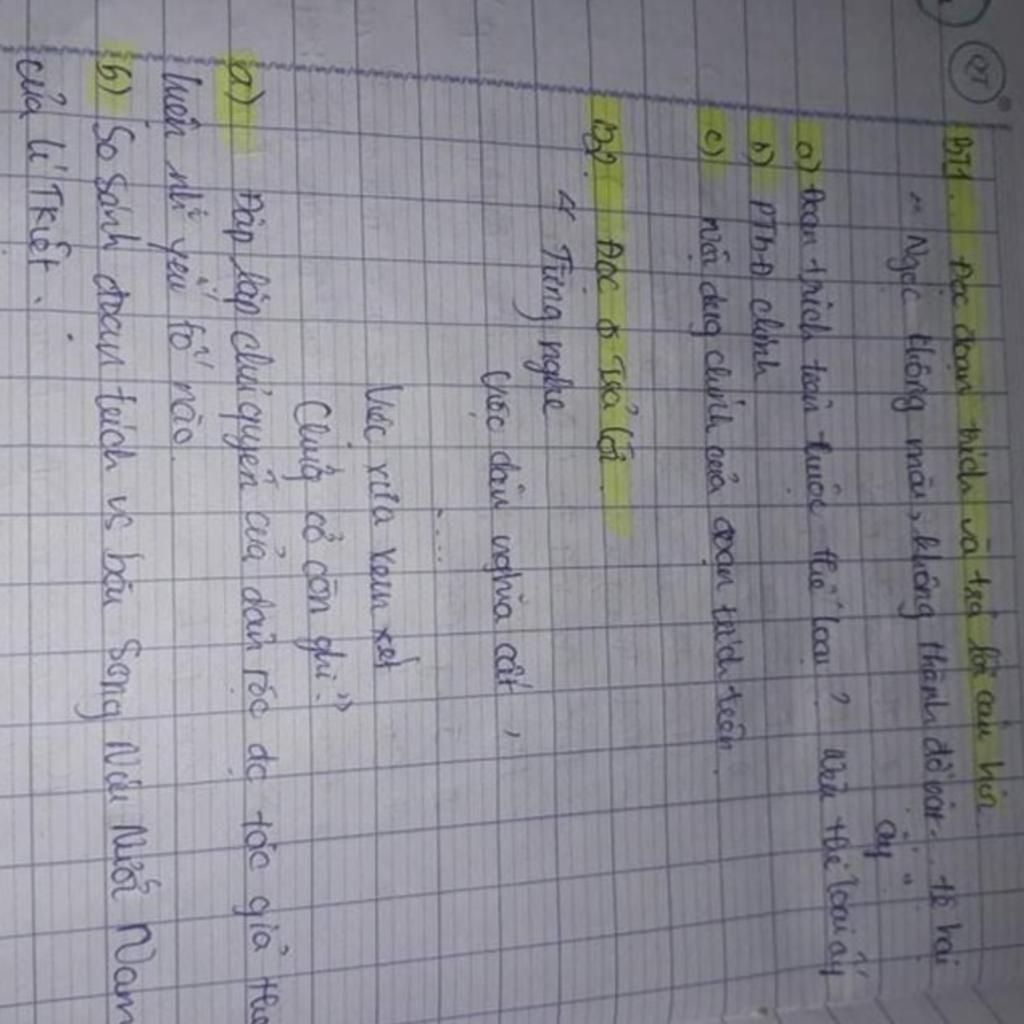 BT1. Đọc đoạn trích và trả lời câu hỏi
"Ngọc không mài, không thành đồ vật... tệ hại
ấy"
a) Đoạn trích trên thuộc thể loại? Nêu thể loại ấy
b) PTBĐ chính
c) Nội dung chính của đoạn trích trên.
Đọc & Trả lời.
" Từng nghe
Việc dân nghĩa cốt,
.....
Việc xưa xem xét
Chứng cớ còn ghi."
a) Độc lập chủ quyền của dân tộc đc tác giả thể
hiện như yếu tố nào.
b) So sánh đoạn trích vs bài Sông Núi Nước Nam
của Lí TKiệt.